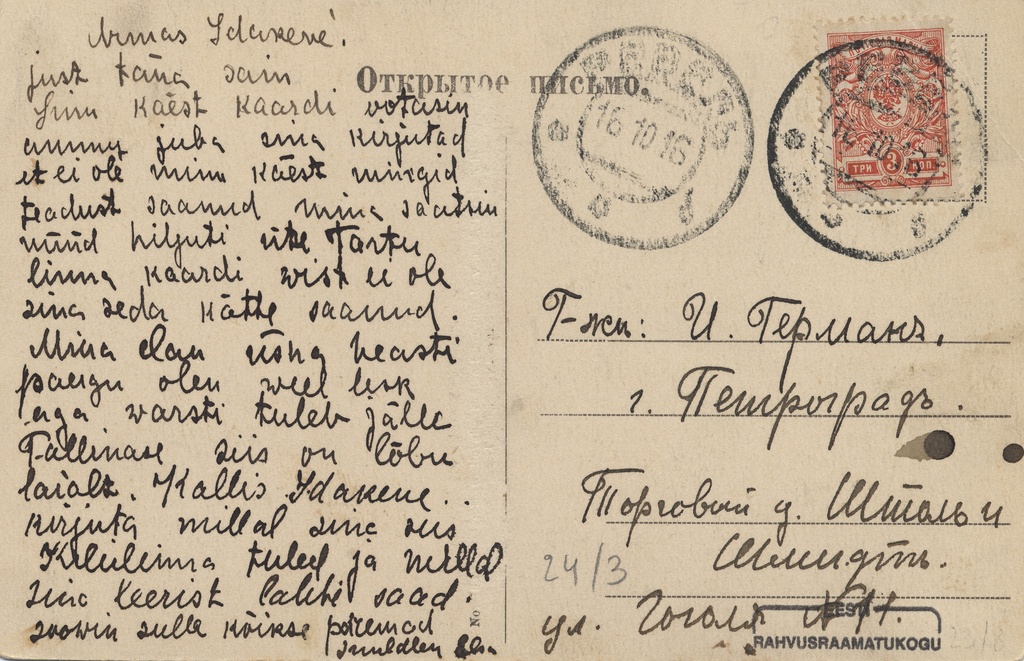 Armas Idakene!
just täna sain
Sinu käest kaardi votasin
ammu juba sina kirjutad
et ei ole minu käest mingid
teadust saanud mina saatsin
nüüd hiljuti ühe Tartu
linna kaardi wist ei ole
sina seda kätte saanud.
Mina elan üsna heasti
paergu olen weel lesk
aga warsti tuleb jälle
Tallinase siis on lõbu
laialt. Kallis Idakene..
kirjuta millal sina siis
tuled ja millal
sina leerist lahti saad.
soowin sulle kõikse paremad
Elsa
No
Открытое письмо.
16 10 16
ТРИ 3 КОП.
Г-жи: И. Германъ,
г. Петроградъ.
Торговый д. Штоль и
Шмидтъ.
24/3
ул. Гоголя N 11.
EESTI
RAHVUSRAAMATUKOGU